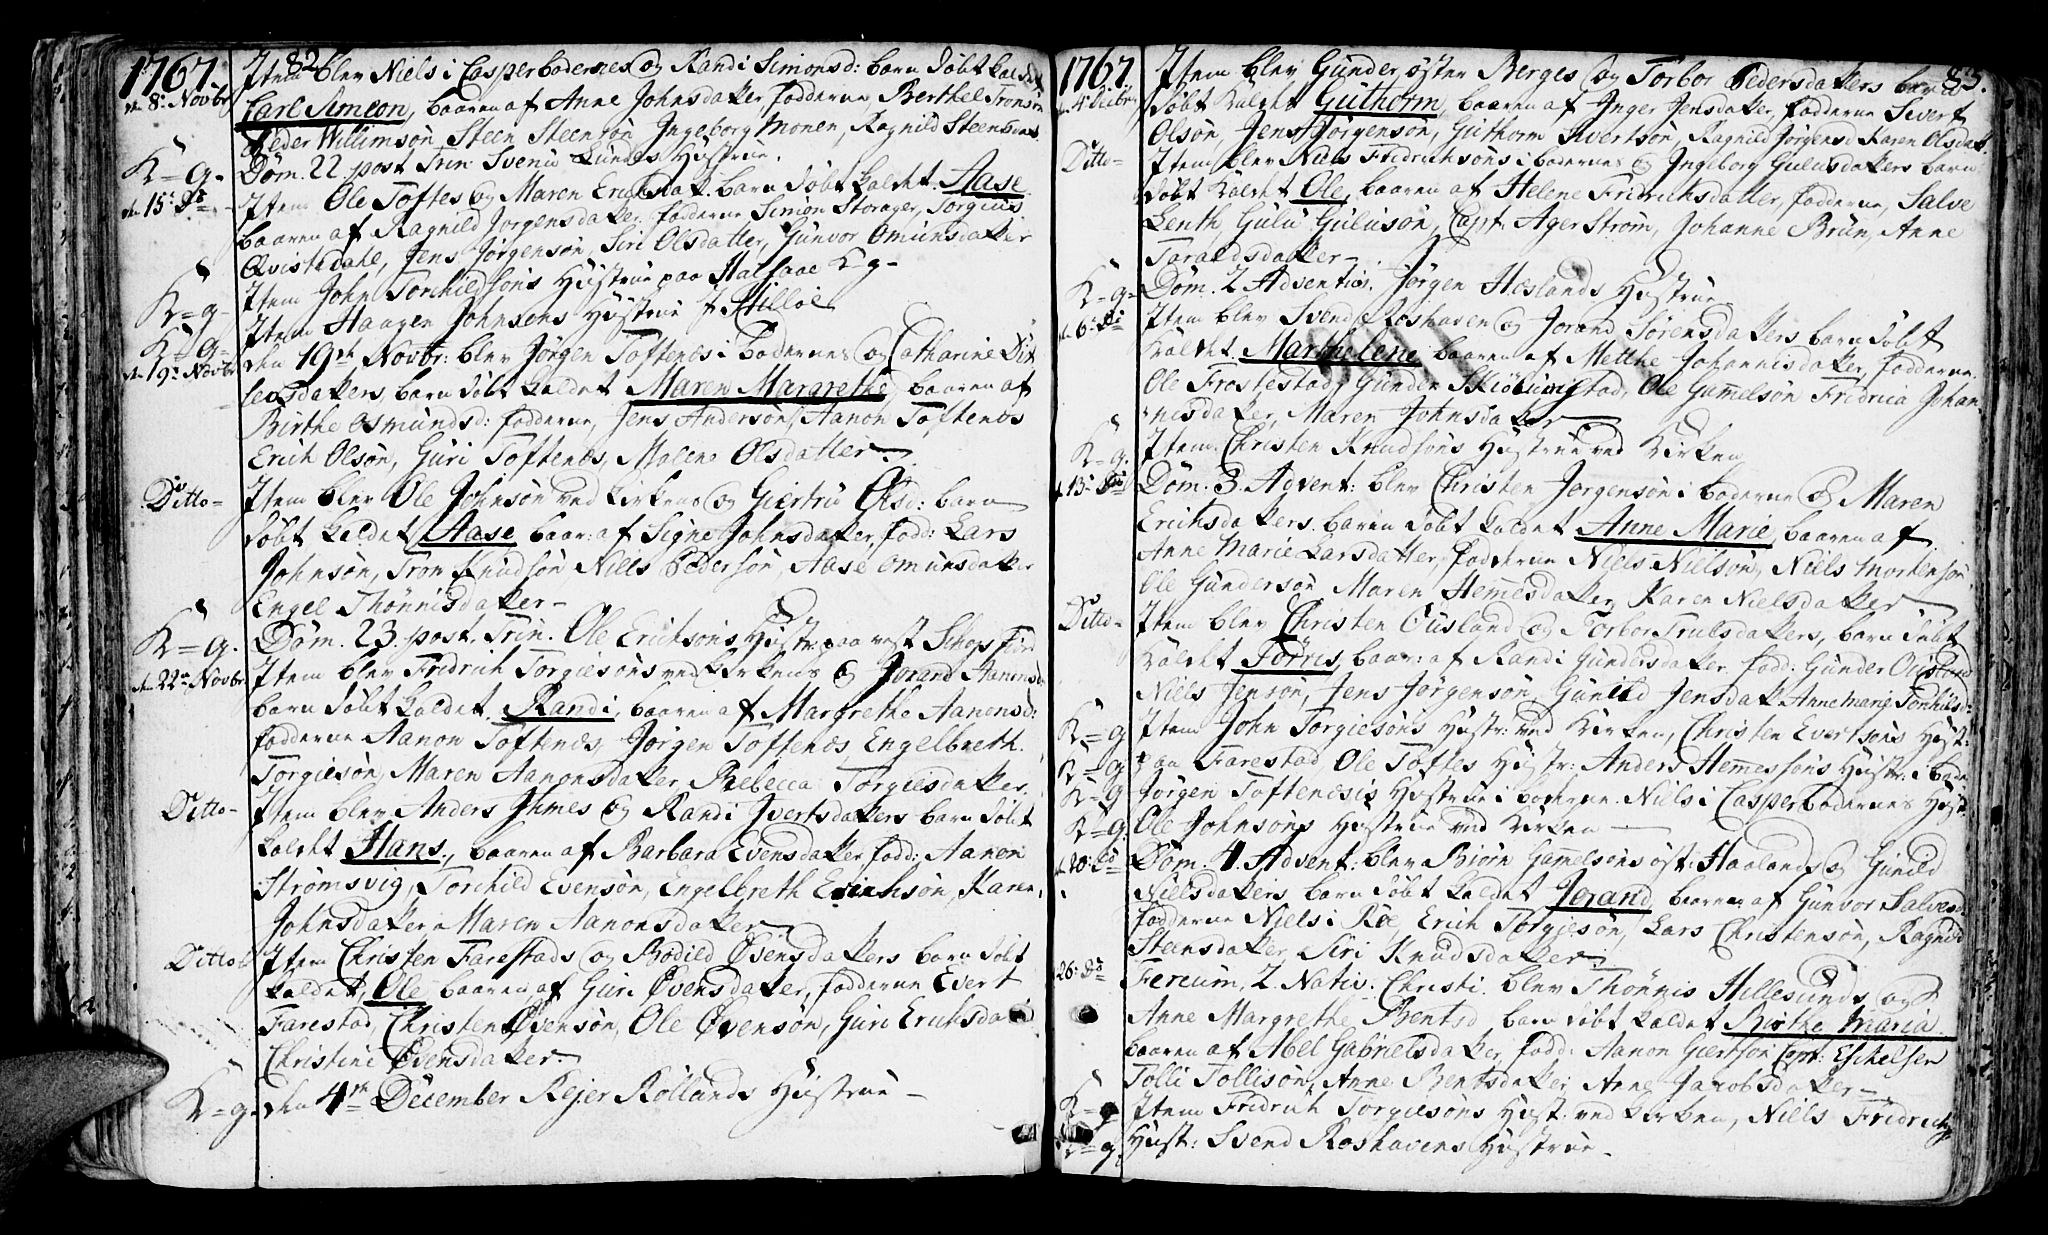 1767.
82
den 8de Novbr
Item blev Niels i Casperbodernes og Randi Simonsd: barn døbt kaldet
Carl Simeon, baaren af Anne Johnsdatter, fadderne Berthel Tronsøn
Peder Willimsøn Steen Steensøn Ingeborg Monen, Ragnild Steensdat.
K=g-
Dom. 22 post Trin Svenu Lunds Hustrue.
den 15de Do
Item Ole Toftes og Maren Erichsdat. barn døbt kaldet Aase
baaren af Ragnild Jørgensdatter, fadderne Simon Storager, Torgius
Qvistedahl, Jens Jørgensøn, Siri Olsdatter, Gunvor Omunsdatter
K=g-
Item John Torchildsøns Hustrue paa Halsaae K=g-
K=g-
Item Haagen Johnsens Hustrue f Hilløe
den 19de Novbr
den 19de Novbr: blev Jørgen Toftenæs i bodernes og Catharine Dit
levsdatters barn døbt kaldet Maren Margrethe, baaren af
Birthe Osmundsd: fadderne, Jens Andersøn, Aanon Toftenæs
Erich Olsøn, Guri Toftenæs, Malene Olsdatter
Ditto-
Item blev Ole Johnsøn ved Kirkens og Giertru Olsd: barn
døbt kaldet Aase baar: af Signe Johnsdatter, fadd: Lars
Johnsøn, Tron Knudsøn Niels Pedersøn, Aase Omunsdatter
Engel Thönnisdatter-
K=g.
Dom. 23 post. Trin. Ole Erichsøns Hustr: paa vest Skogsfiord
den 22de Novbr
Item blev Fridrich Torgiesøns ved Kirkens og Jorand Aanonsd:
barn døbt kaldet Randi, baaren af Margrethe Aanonsd:
fadderne Aanon Toftenæs, Jørgen Toftenæs, Engelbreth
Torgiesøn, Maren Aanonsdatter, Rebecca Torgiesdatter.
Ditto-
Item blev Anders Ihmes og Randi Ivertsdatters barn døbt
kaldet Hans, baaren af Barbara Evensdatter, fadd: Aanon
Strømsvig, Torchild Evensøn, Engelbreth Erichsøn, Karen
Johnsdatter, Maren Aanonsdatter
Ditto
Item Christen Farestads og Bodild Øvensdatters barn døbt
kaldet, Ole baaren af Guri Øvensdatter, fadderne Evert
Farestad, Christen Øvensøn, Ole Øvensøn, Guri Erichsdat
Christini Øvensdatter-
K=g.
den 4de December Rejer Röllands Hustrue -
1767.
83.
den 4 Decbr
Item blev Gunder øster Berges og Torbor Pedersdatters barn
døbt kaldet Guthorm, baaren af Inger Jensdatter, fadderne Sivert
Olsøn, Jens Jørgensøn, Guthorm Sivertsøn, Ragnild Jørgensd Karen Olsdat.
Ditto-
Item blev Niels Fridrichsøns i bodernes og Ingeborg Gulusdatters barn
døbt kaldet Ole, baaren af Helene Fridrichsdatter, fadderne, Salve
Lenth, Gulu Gulusøn, Capt: AgerStrøm, Johanne Brun, Anne
Taraldsdatter-
K=g-
Dom. 2 Adventus. Jørgen Hæslands Hustrue
den 6 Do
Item blev Svend Roshaven og Jorand Sørensdatters barn døbt
kaldet Marthelene baaren af Metthe Johannisdatter, fadderne
Ole Frostestad, Gunder Skiølingstad, Ole Gamelsøn Fridrica Johan
nisdatter, Maren Johnsdatter
K=g.
Item Christen Knudsøns Hustrue ved Kirken
d 13 Do
Dom. 3. Advent: blev Christen Jørgensøn i boderne og Maren
Erichsdatters barn døbt kaldet Anne Marie, baaren af
Anne Marie Larsdatter, fadderne Niels Nielsøn, Niels Mortensøn
Ole Gundersøn Maren Hemesdatter, Karen Nielsdatter
Ditto-
Item blev Christen Ousland og Torbor Trulsdatters, barn døbt
kaldet Törris, baar: af Randi Gundersdatter fadd: Gunder Ousland
Niels Jensøn, Jens Jørgensøn Gunild Jensdat Annemarie Torchilsd:
K=g
Item John Torgiesøns Hustr: ved Kirken, Christen Evertsøns Hust:
K=g
paa Farestad Ole Toftes Hustr: Anders Hemessøns Hustr: i bode
K=g
Jørgen Toftenæsis Hustrue i boderne. Niels i Casperbodernes Hust:
K=g.
Ole Johnsøns Hustrue ved Kirken
d 20 Do
Dom. 4. Advent: blev Biörn Gamelsøns öst: Haalands og Gunild
Nielsdatters barn døbt kaldet Jorand baaren af Gunvor Salvesd:
fadderne Niels i Röe, Erich Torgiesøn, Lars Christensøn, Ragnild
Steensdatter, Siri Knudsdatter
26: Do
Ferium, 2. Nativ: Christi. blev Thönnis Hillesunds og
Anne Margrethe Bentsd barn døbt kaldet Birthe Maria
baaren af Abel Gabrielsdatter, fadd: Aanon Giertsøn Capt: Eschelsen
Tolli Tollisøn, Anne Bentsdatter, Anne Jacobsdatter-
K=g
Item Fridrich Torgiesøns Hust: ved Kirken, Niels Fridrichs
K=g
Hust: Svend Roshavens Hustrue-